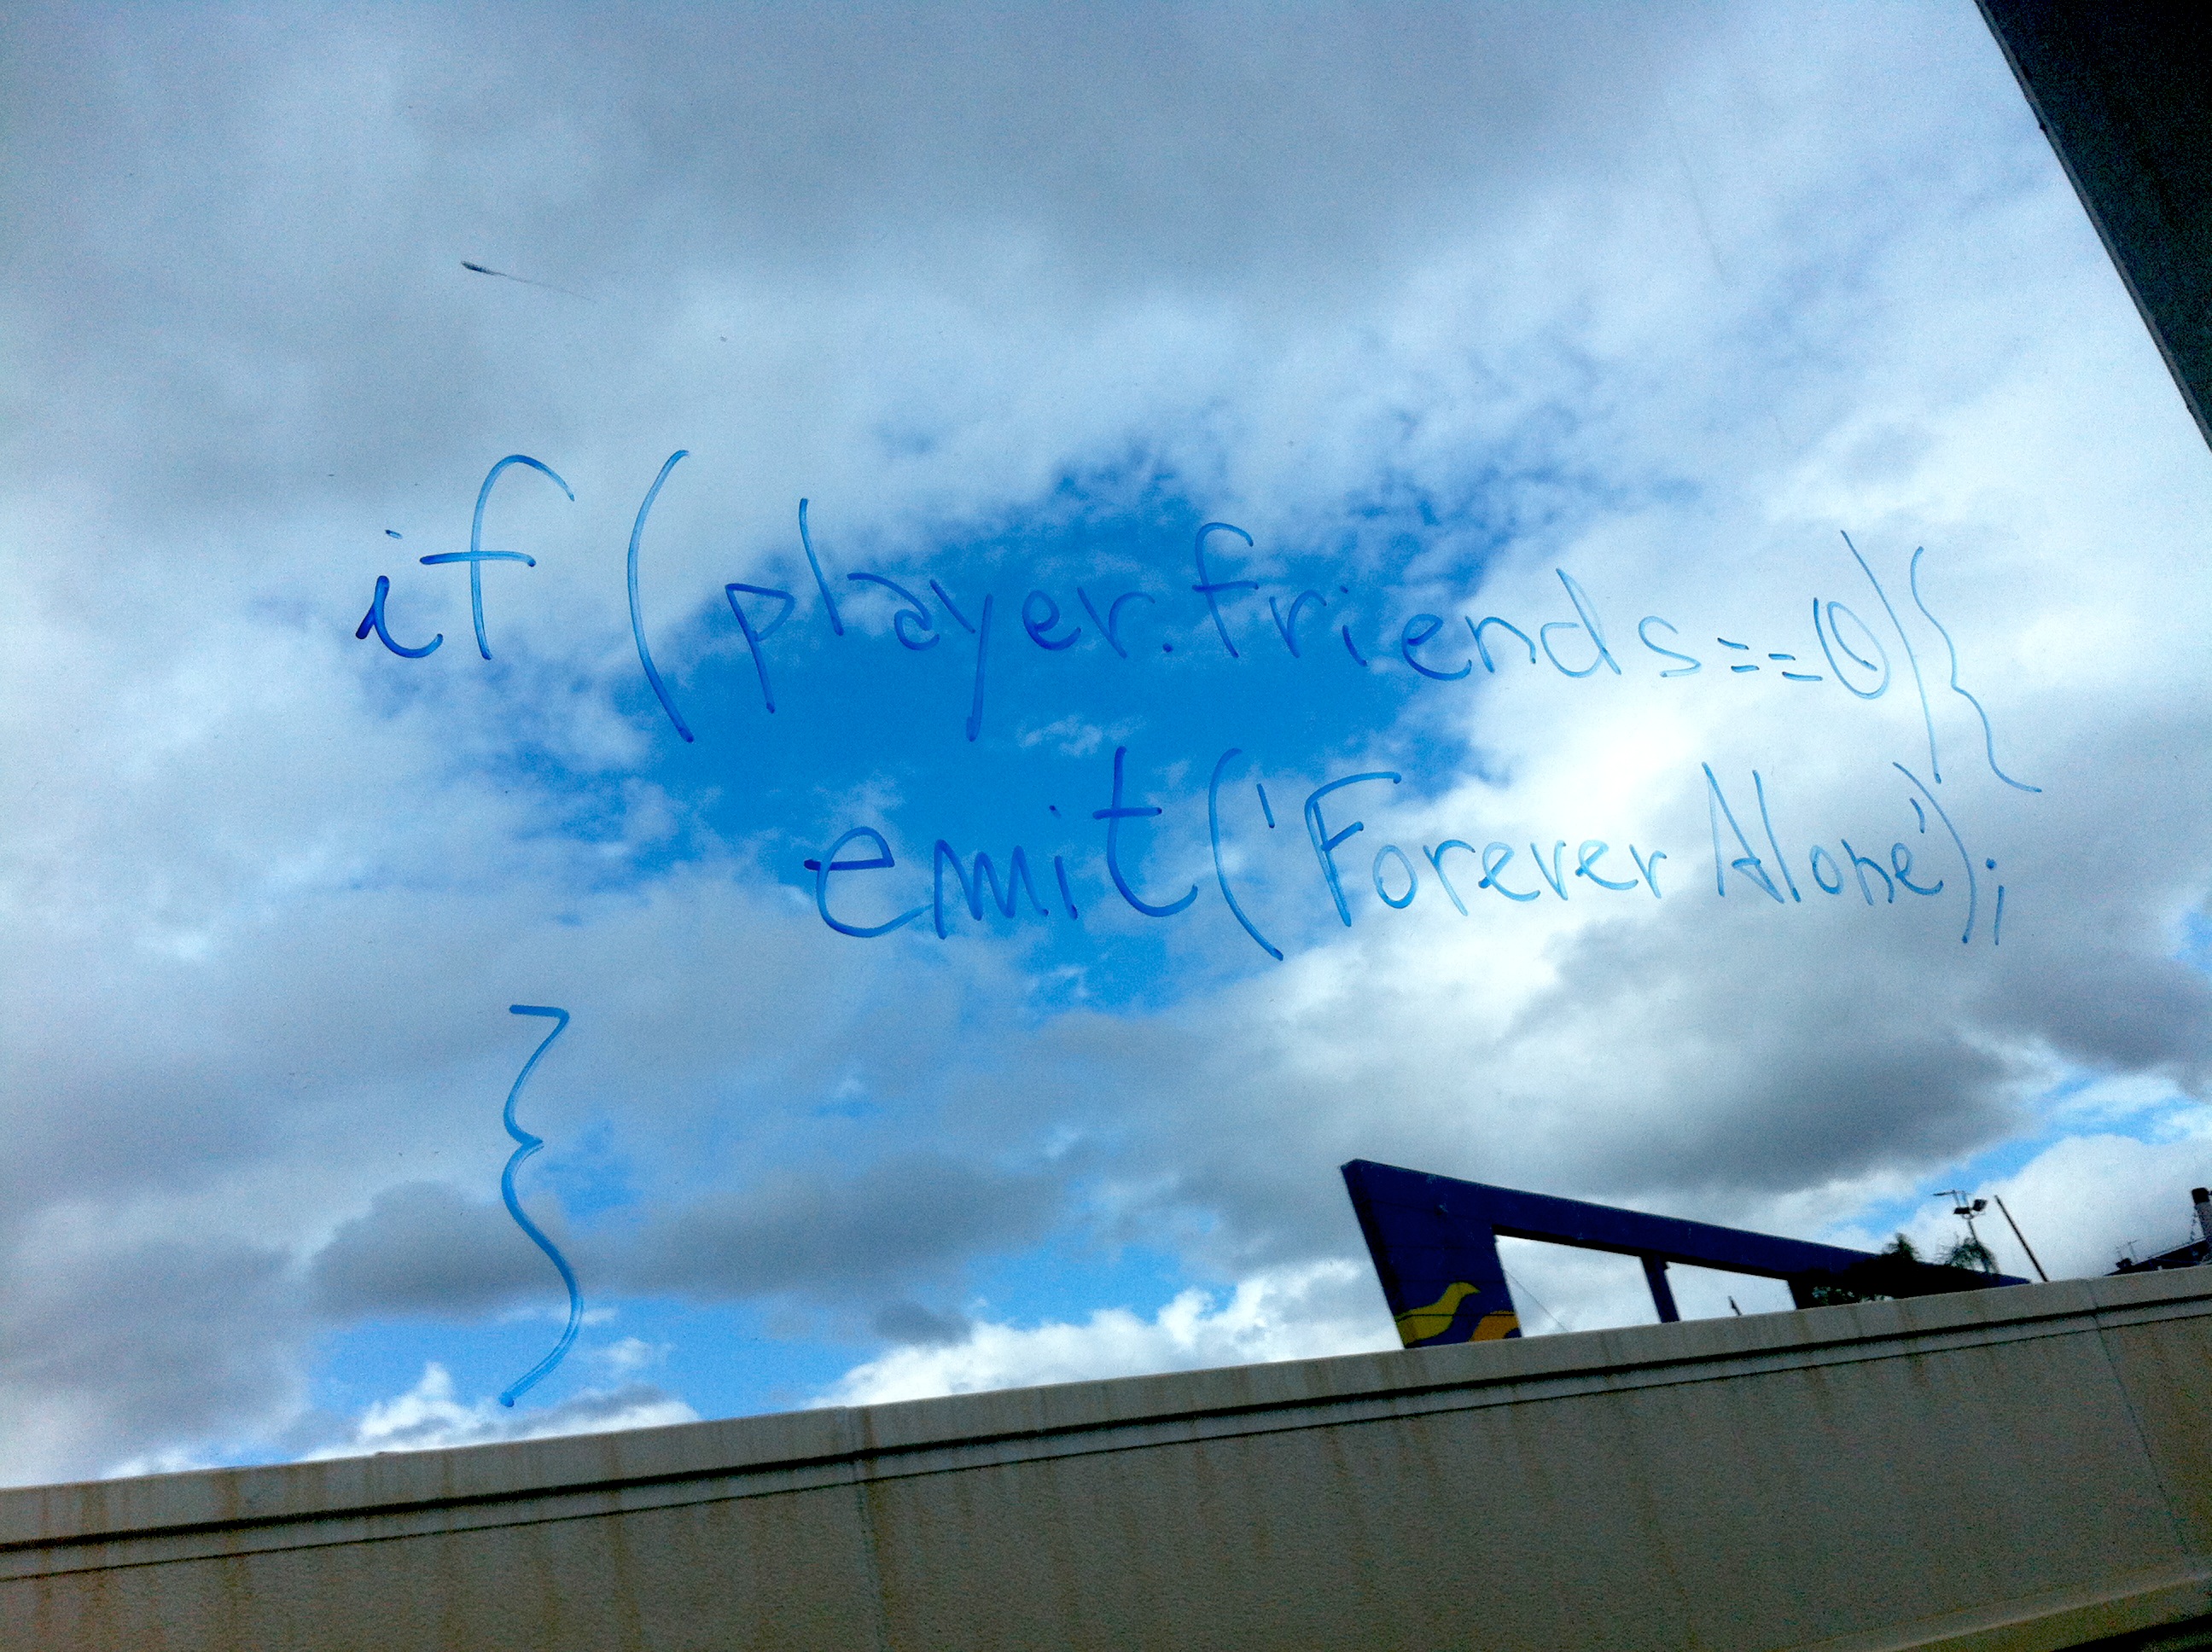 if (player.friends==0){
emit('Forever Alone');
}